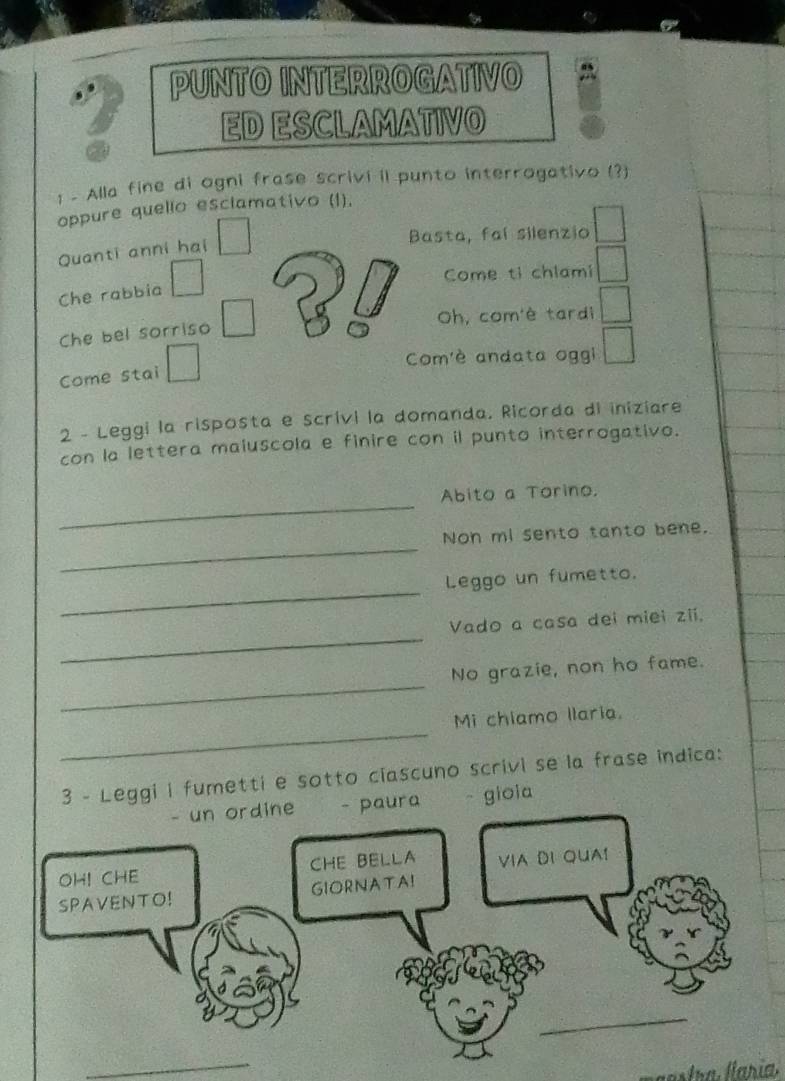 PUNTO INTERROGATIVO
ED ESCLAMATIVO
1 - Alla fine di ogni frase scrivi il punto interrogativo (?)
oppure quello esclamativo (!).
Quanti anni hai
Che rabbia
Che bel sorriso
Come stai
?!
Basta, fai silenzio
Come ti chiami
Oh, com'è tardi
Com'è andata oggi
2 - Leggi la risposta e scrivi la domanda. Ricorda di iniziare
con la lettera maiuscola e finire con il punto interrogativo.
Abito a Torino.
Non mi sento tanto bene.
Leggo un fumetto.
Vado a casa dei miei zii.
No grazie, non ho fame.
Mi chiamo Ilaria.
3 - Leggi i fumetti e sotto ciascuno scrivi se la frase indica:
- un ordine - paura - gioia
OH! CHE
SPAVENTO!
CHE BELLA
GIORNATA!
VIA DI QUA!
Ilaria